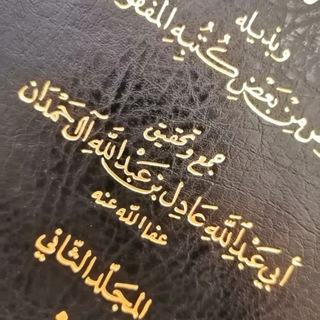 وبذيله
مِنْ بَعْضِ كُتُبِهِ
جمع وتحقيق
أبي عَبْدِ اللَّهِ عَادِل بن عَبْدِ اللَّهِ آل حَمْدَان
عفا الله عنه
المجلّد الثّاني